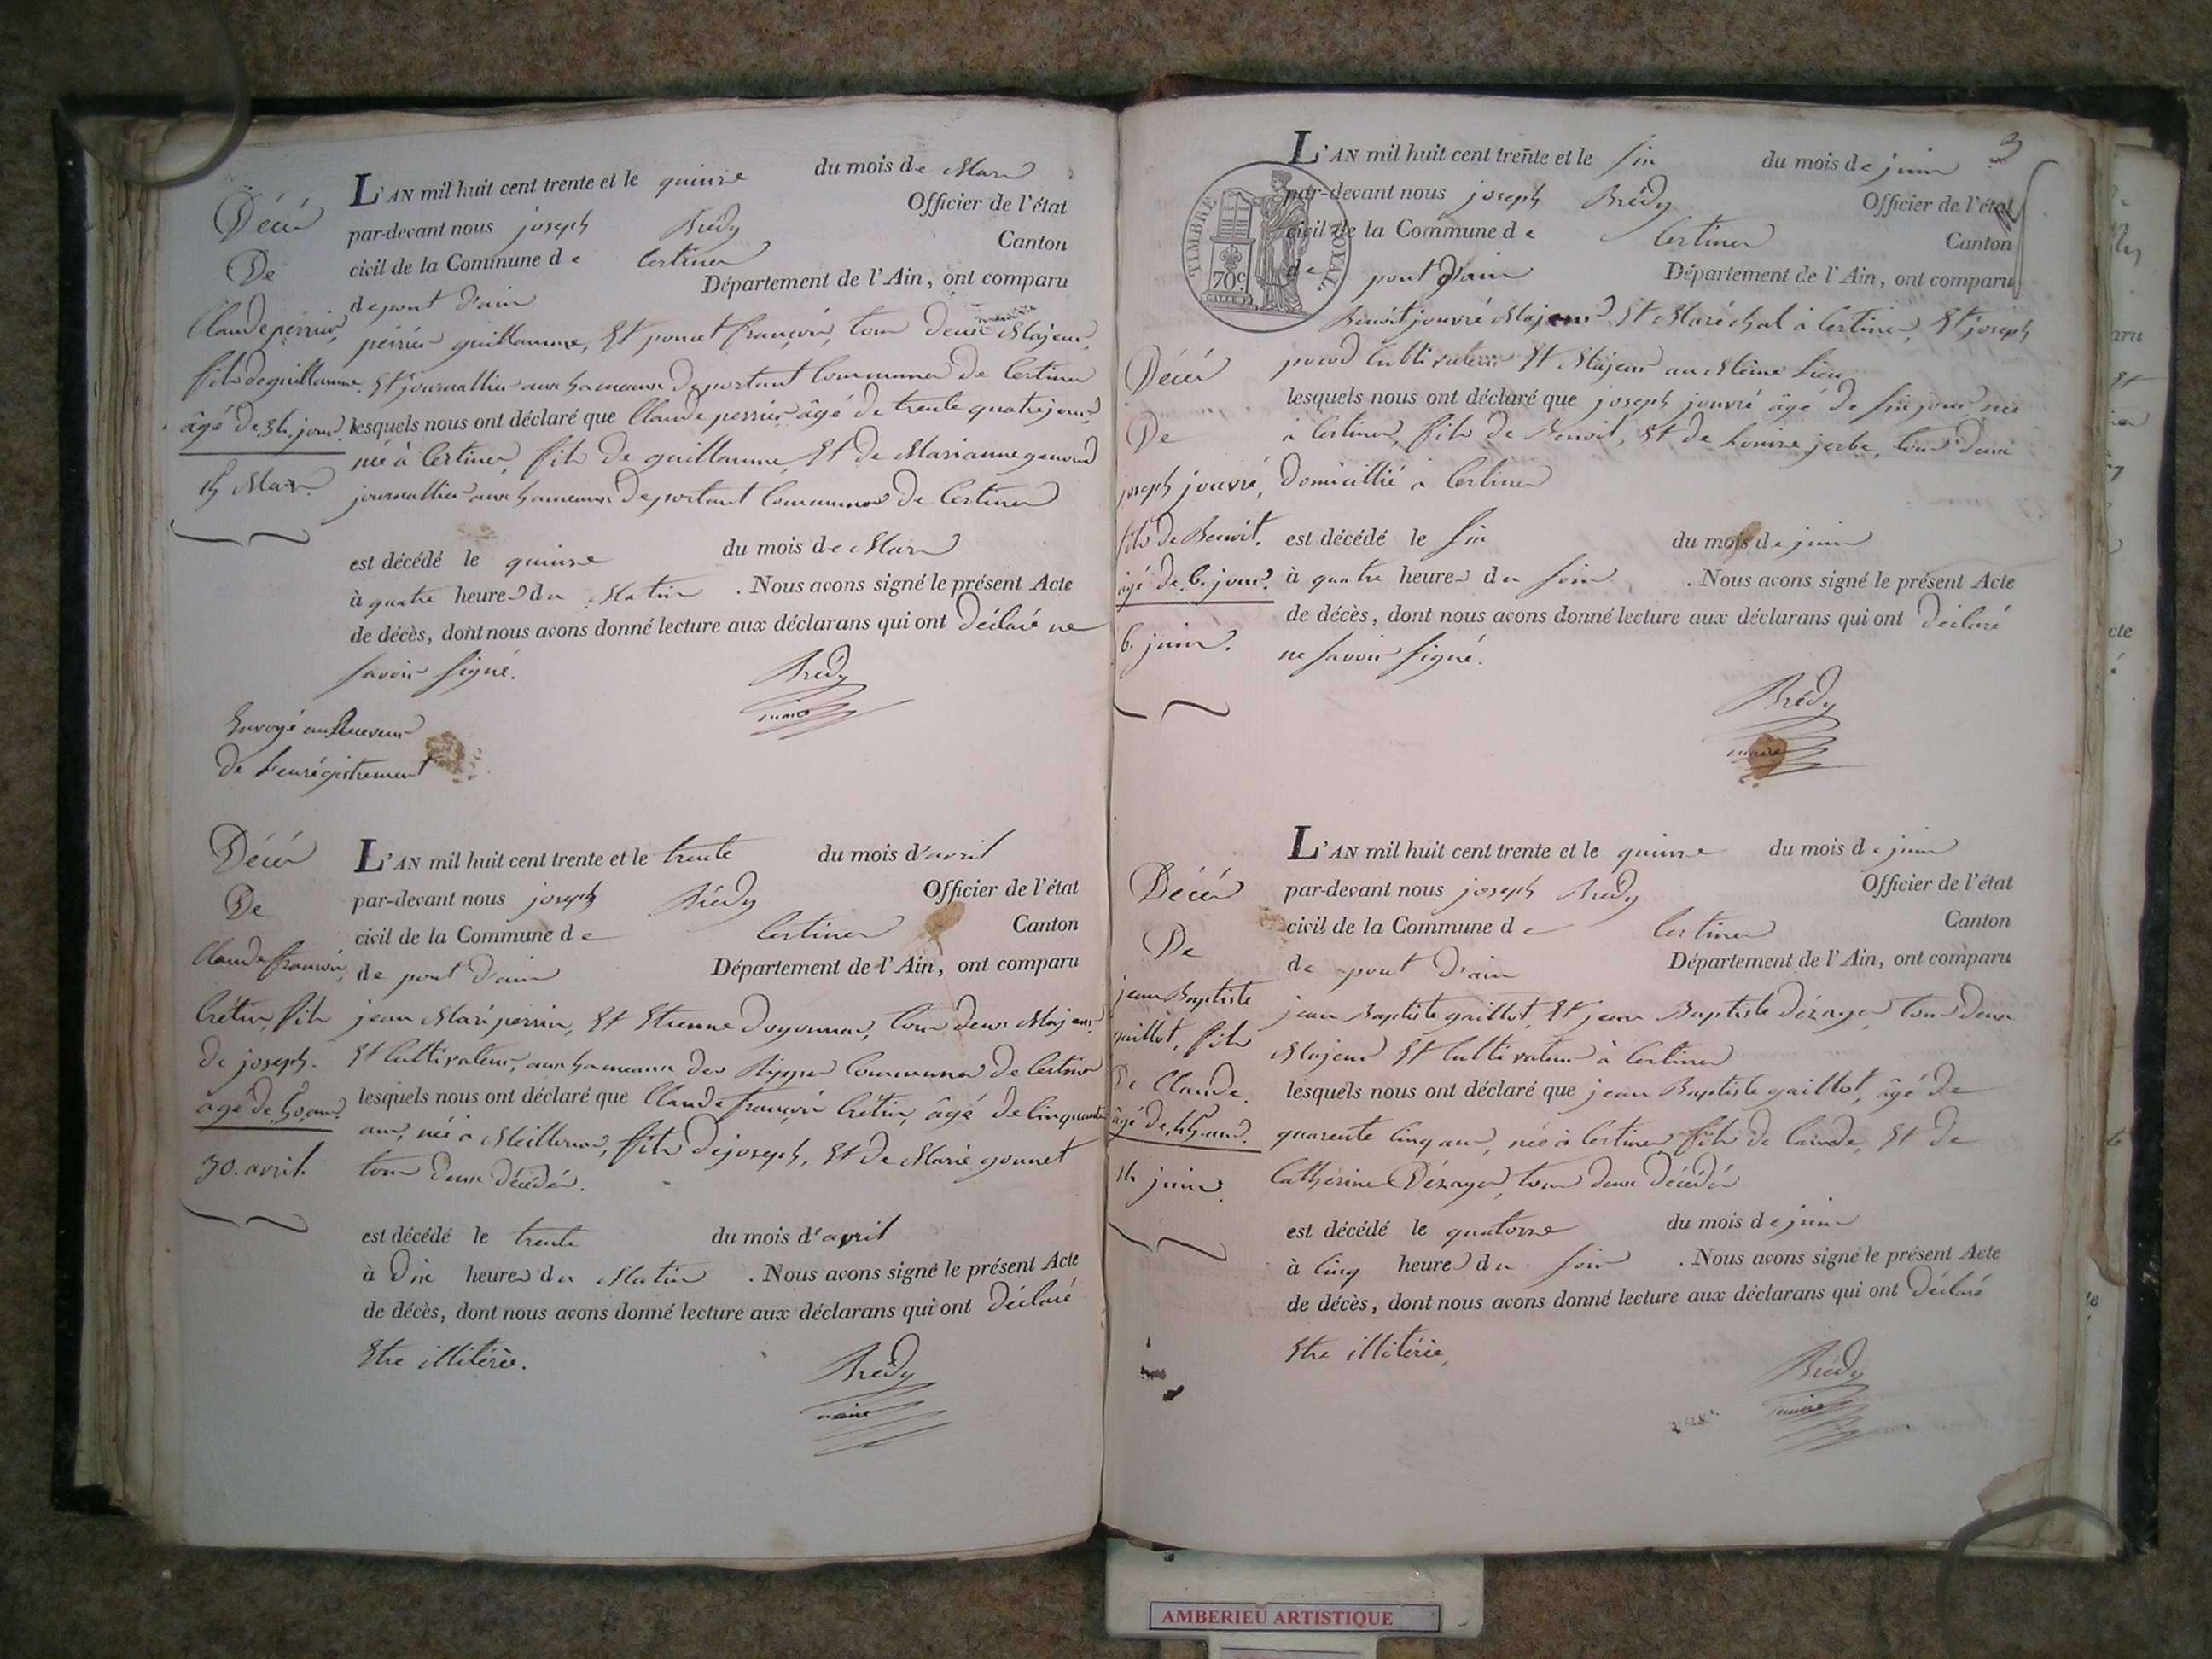 Décès
De
Claude perrier,
fils de guillaume
âgé de 34. jours.
15 Mars.
L'AN mil huit cent trente et le quinze du mois de Mars
par-devant nous joseph Brédy Officier de l'état
civil de la Commune de Certines Canton
de pont d'ain Département de l'Ain, ont comparu
perrier guillaume, Et ponut françois, tous deux Majeurs,
Et journallier aux hameaux Deportant Communes de Certines
lesquels nous ont déclaré que Claude perrier âgé de trente quatre jours,
née à Certines, fils de guillaume, Et de Marianne
journallier aux hameaux Deportant Communes De Certines
est décédé le quinze du mois de Mars
à quatre heures du Matin. Nous avons signé le présent Acte
de décès, dont nous avons donné lecture aux déclarans qui ont Déclaré ne
savoir signé.
Brédy
maire
Envoyé au Receveur
de L'enrégistrement
Décès
De
Claude françois,
Crétin, fils
de joseph.
âgé de 50. ans.
30. avril.
L'AN mil huit cent trente et le trente du mois d'avril
par-devant nous joseph Brédy Officier de l'état
civil de la Commune de Certines Canton
de pont d'ain Département de l'Ain, ont comparu
jean Marie perrin, Et Etienne Doyonnas, tous deux Majeurs
Et Cultivateurs, aux hameaux des Rippes Communes de Certines
lesquels nous ont déclaré que Claude françois Crétin, âgé de cinquante
ans, née à Meillonas, fils de joseph, Et de Marie gonnet
tous deux Décédés.
est décédé le trente du mois d'avril
à Dix heures du Matin. Nous avons signé le présent Acte
de décès, dont nous avons donné lecture aux déclarans qui ont Déclaré
Etre illitérée.
Brédy
maire
3
TIMBRE ROYAL
70c.
L'AN mil huit cent trente et le six du mois de juin
par-devant nous joseph Brédy Officier de l'état
civil de la Commune de Certines Canton
de pont d'ain Département de l'Ain, ont comparu
Benoit jouvré Majeur Et Maréchal à Certines, Et joseph
Cultivateur Et Majeur au Même Lieu
lesquels nous ont déclaré que joseph jouvré âgé de six jours née
à Certines, fils de Benoit, Et de Louise jerbe, tous deux
Domicillié à Certines
Décès
De
joseph jouvré,
fils de Benoit.
âgé de 6. jours.
6. juin.
est décédé le six du mois de juin
à quatre heures du soir. Nous avons signé le présent Acte
de décès, dont nous avons donné lecture aux déclarans qui ont Déclaré
ne savoir signé.
Brédy
maire
Décès
De
jean Baptiste
gaillot, fils
De Claude.
âgé de 45. ans.
14 juin.
L'AN mil huit cent trente et le quinze du mois de juin
par-devant nous joseph Brédy Officier de l'état
civil de la Commune de Certines Canton
de pont d'ain Département de l'Ain, ont comparu
jean Baptiste gaillot, Et jean Baptiste Dézayes, tous deux
Majeurs Et Cultivateurs à Certines
lesquels nous ont déclaré que jean Baptiste gaillot, âgé de
quarente cinq ans, née à Certines fils de Claude, Et de
Catherine Dézayes, tous deux Décédés
est décédé le quatorze du mois de juin
à cinq heures du soir. Nous avons signé le présent Acte
de décès, dont nous avons donné lecture aux déclarans qui ont Déclaré
Etre illitérée,
Brédy
maire
AMBERIEU ARTISTIQUE